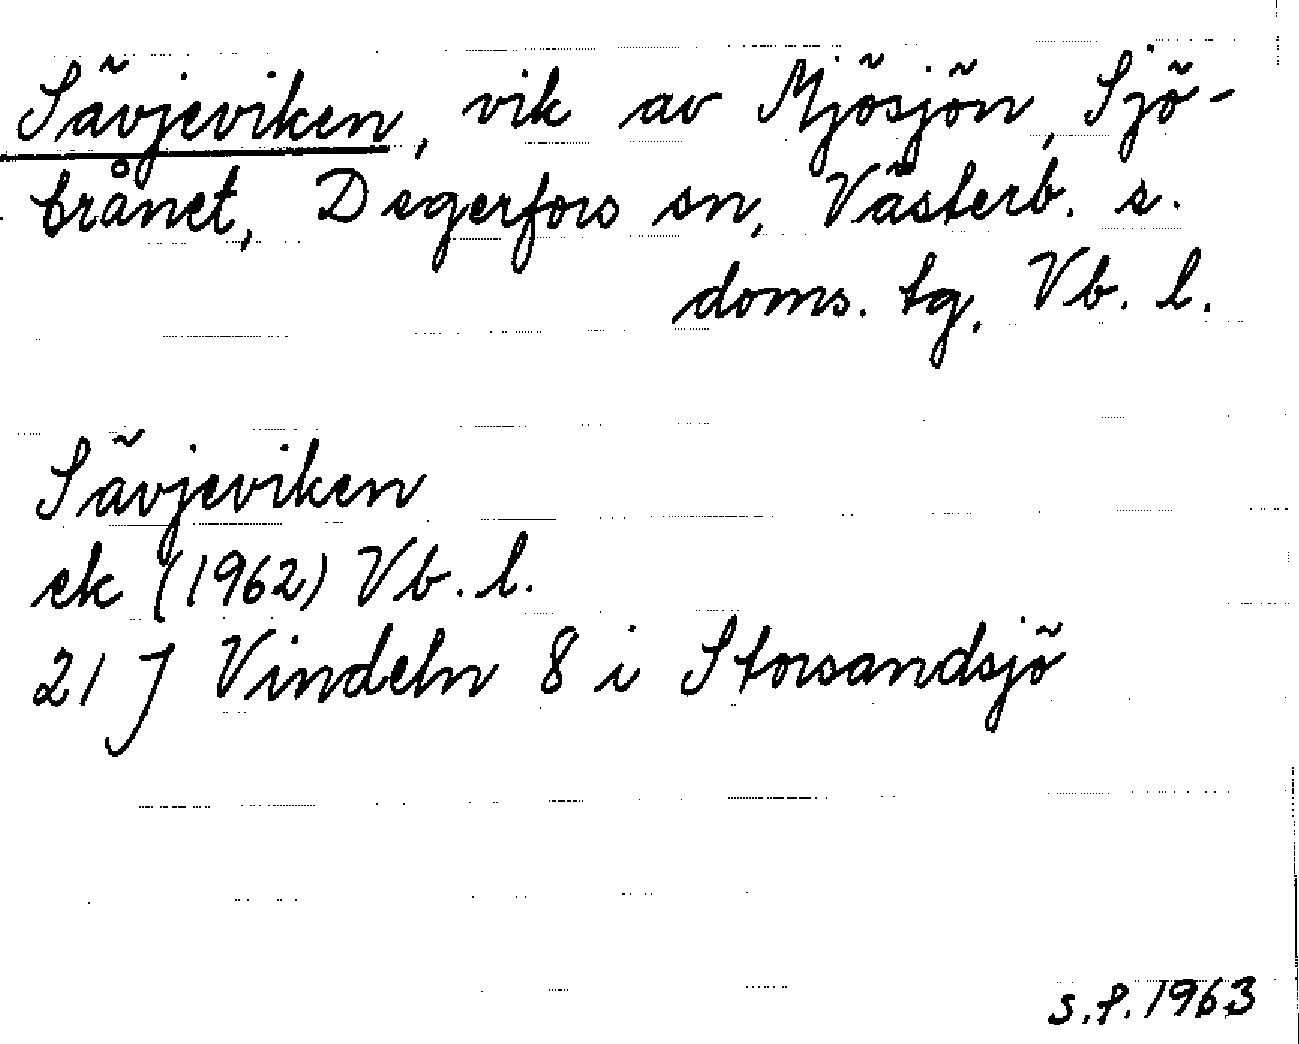 Sävjeviken, vik av Mjösjön, Sjö-
brånet, Degerfors sn, Västerb. s.
doms. tg, Vb. l.
Sävjeviken
ek (1962) Vb. l.
21 J Vindeln 8 i Storsandsjö
s.f. 1963